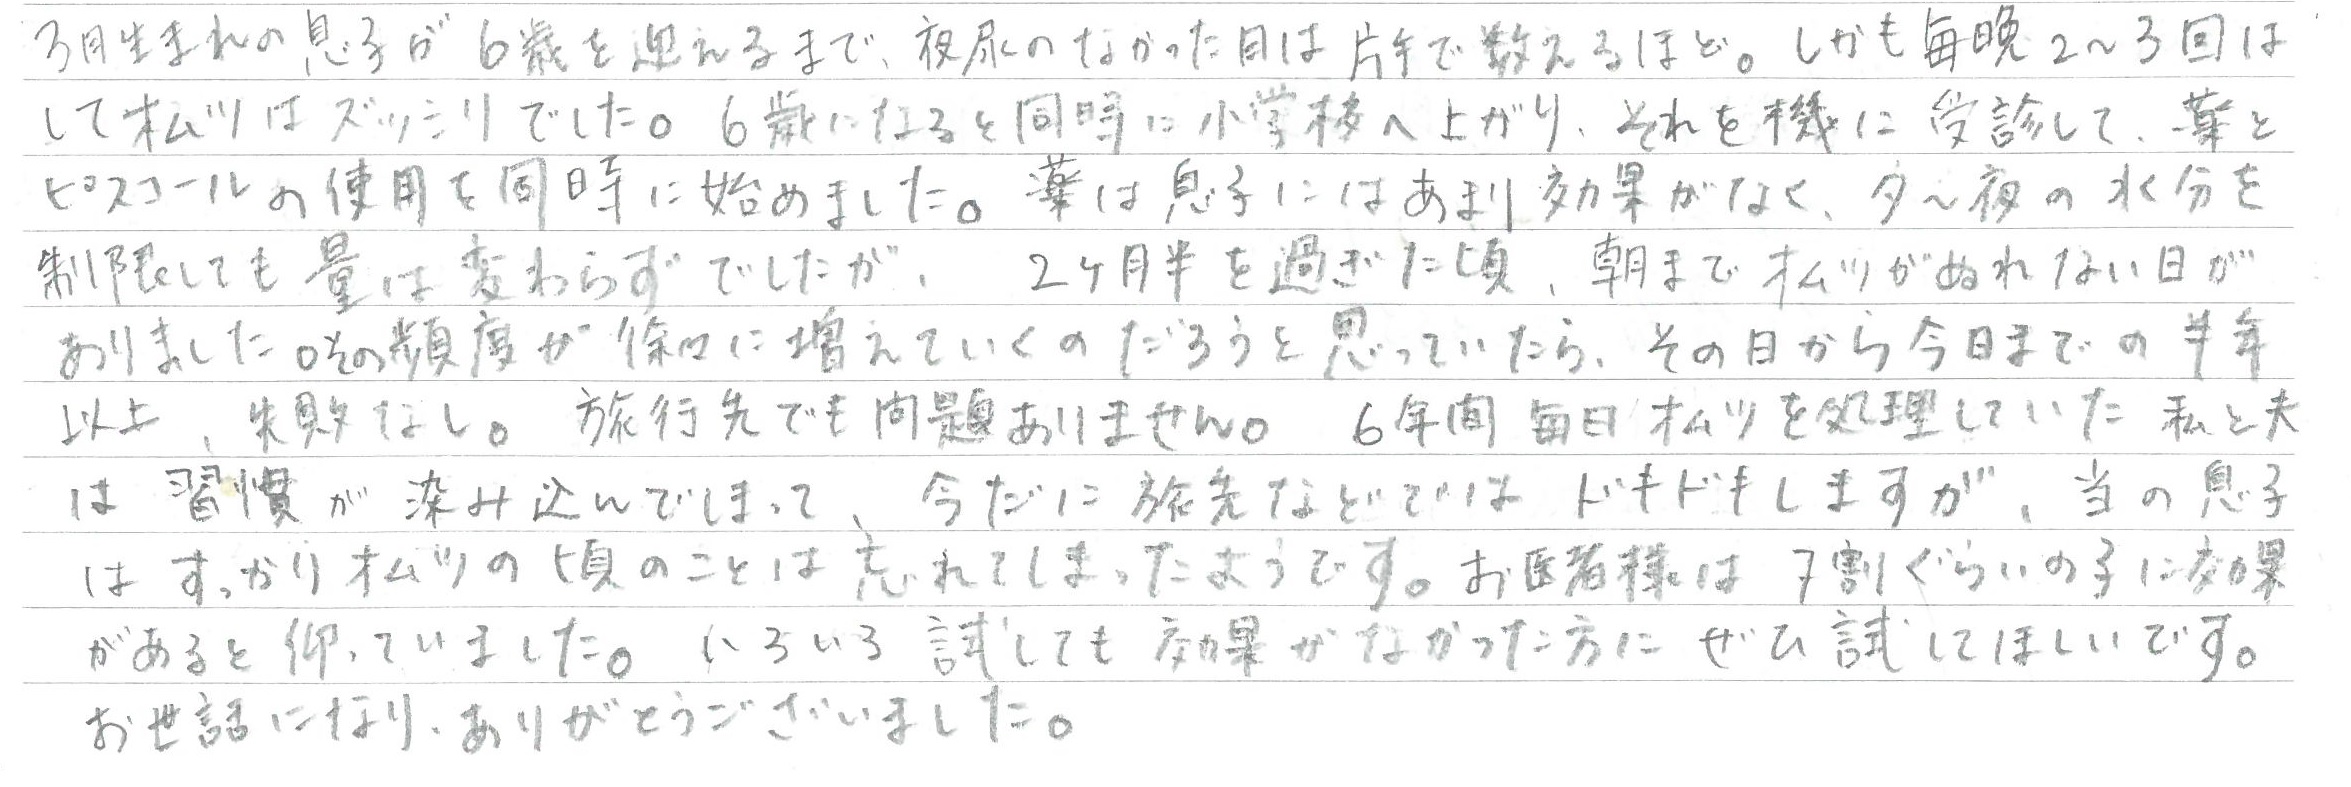 3月生まれの息子が6歳を迎えるまで、夜尿のなかった日は片手で数えるほど。しかも毎晩2～3回は
してオムツはズッシリでした。6歳になると同時に小学校へ上がり、それを機に受診して、薬と
ピスコールの使用を同時に始めました。薬は息子にはあまり効果がなく、夕～夜の水分を
制限しても量は変わらずでしたが、2ヶ月半を過ぎた頃、朝までオムツがぬれない日が
ありました。その頻度が徐々に増えていくのだろうと思っていたら、その日から今日までの半年
以上、失敗なし。旅行先でも問題ありません。6年間毎日オムツを処理していた私と夫
は習慣が染み込んでしまって、今だに旅先などではドキドキしますが、当の息子
はすっかりオムツの頃のことは忘れてしまったようです。お医者様は7割ぐらいの子に効果
があると仰っていました。いろいろ試しても効果がなかった方にぜひ試してほしいです。
お世話になり、ありがとうございました。